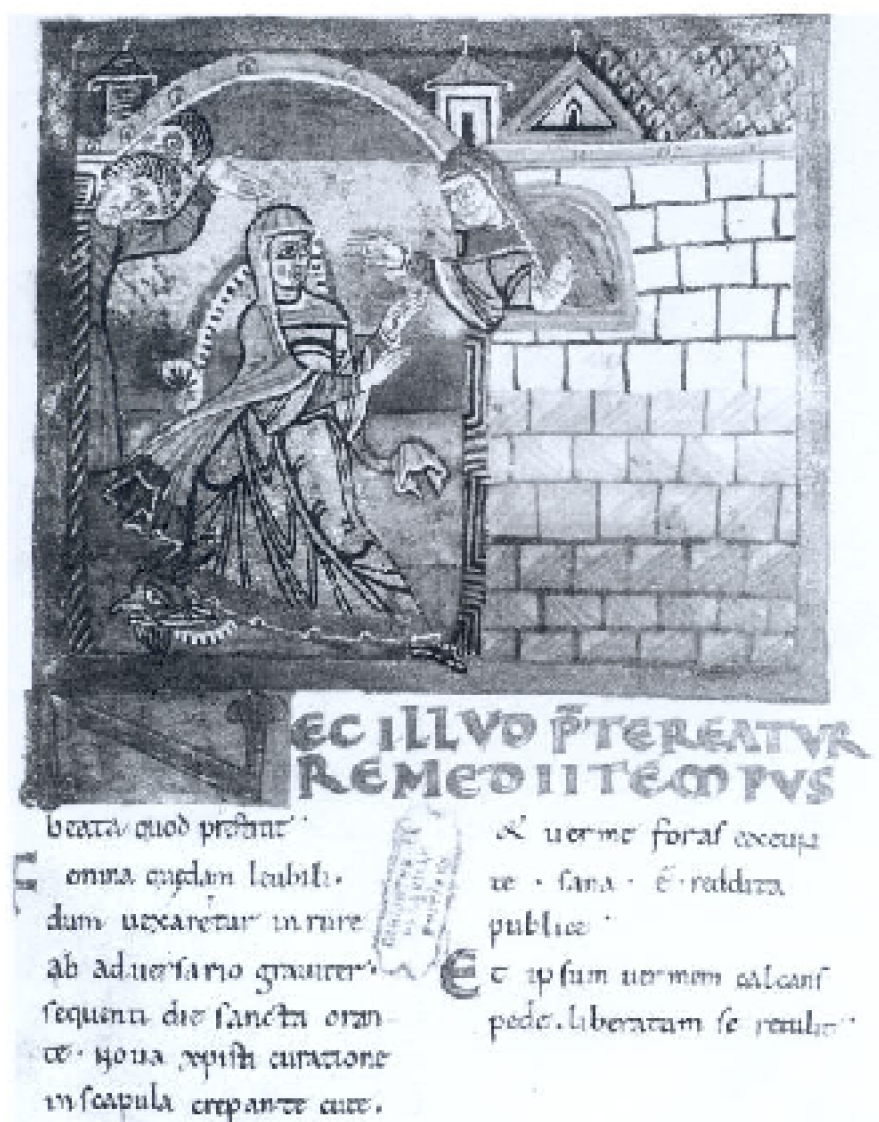 NEC ILLVD P̄TEREATVR
REMEDII TEMPVS
beata quod prestitit
Femina quedam leubile.
dum uexaretur in rure
ab aduersario grauiter.
sequenti die sancta oran
te. noua xpisti curatione
in scapula crepante cute.
& uerme foras
te. sana. ē. reddita
publice
Et ipsum uermem calcans
pede. liberatam se retulit